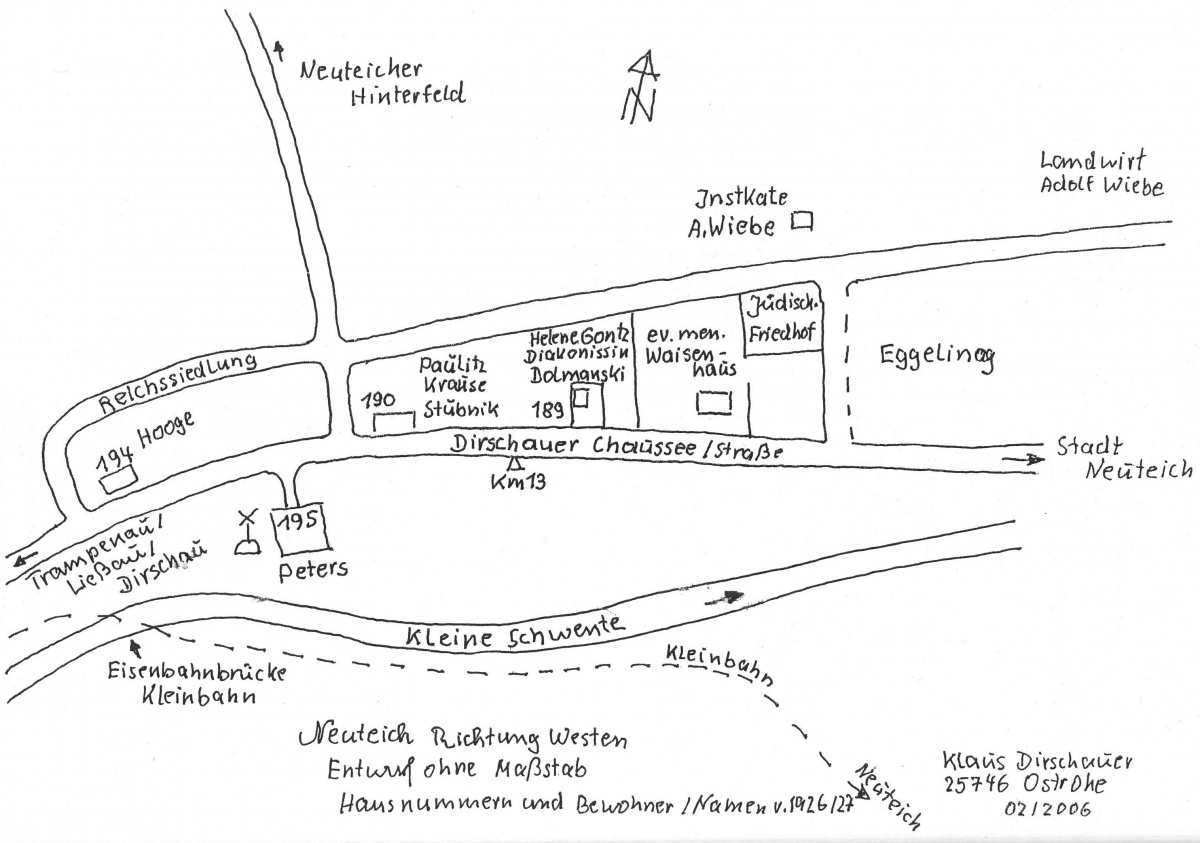 Neuteicher
Hinterfeld
N
Landwirt
Adolf Wiebe
Instkate
A. Wiebe
Jüdisch.
Friedhof
Helene Gontz
Diakonissin
Dolmanski
189
ev. men.
Waisen-
haus
Eggelinog
Reichssiedlung
Paulitz
Krause
Stübnik
190
Hooge
194
Dirschauer Chaussee/Straße
Km13
Stadt
Neuteich
195
Peters
Trampenau/
Ließau/
Dirschau
Kleine Schwente
Kleinbahn
Eisenbahnbrücke
Kleinbahn
Neuteich
Neuteich Richtung Westen
Entwurf ohne Maßstab
Hausnummern und Bewohner/Namen v. 1926/27
Klaus Dirschauer
25746 Ostrohe
02/2006